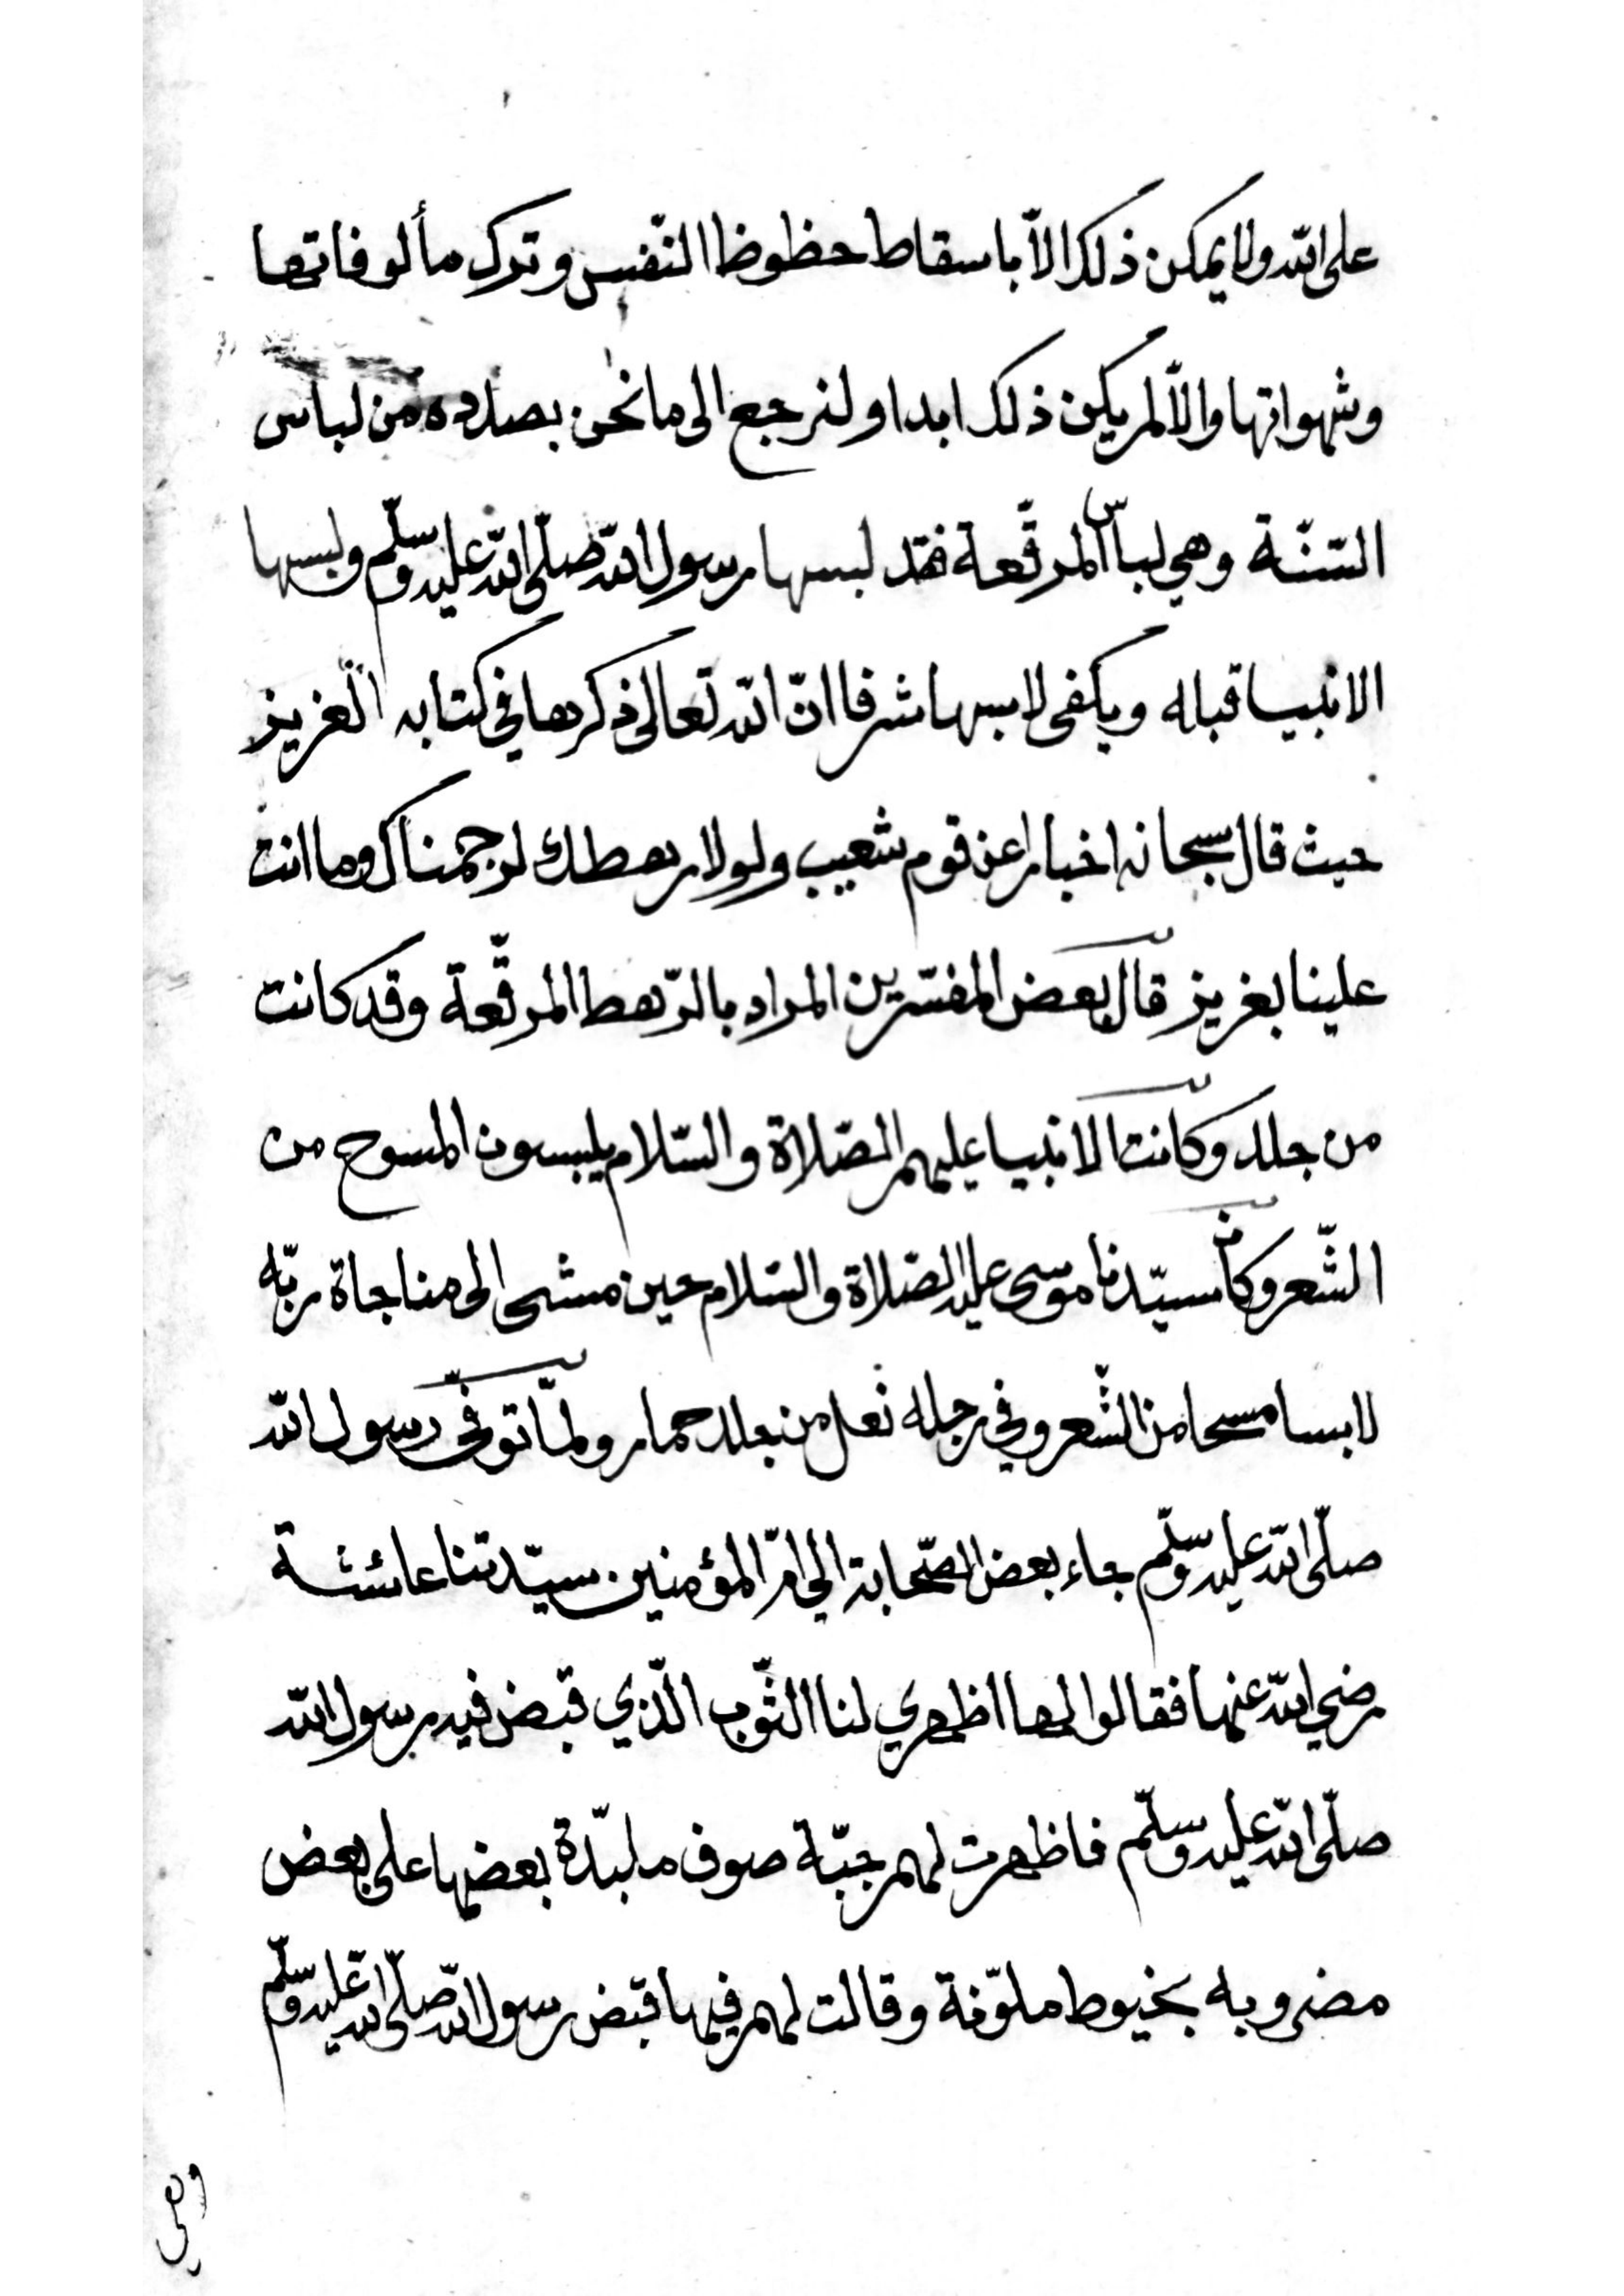 على الله ولا يمكن ذلك الاّ باسقاط حظوظ النّفس وترك مألوفاتها
وشهواتها والاّ لم يكن ذلك ابدا ولنرجع الى ما نحن بصدده من لباس
السّنّة وهي لباس المرقّعة فقد لبسها رسول الله صلّى الله عليه وسلّم ولبسها
الانبيا قبله ويكفى لابسها شرفا انّ الله تعالى ذكرها في كتابه العزيز
حيث قال سبحانه اخبارا عن قوم شعيب ولولا رهطك لرجمناك وما انت
علينا بعزيز قال بعض المفسّرين المراد بالرّهط المرقّعة وقد كانت
من جلد وكانت الانبيا عليهم الصّلاة والسّلام يلبسون المسوح من
الشّعر وكان سيّدنا موسى عليه الصّلاة والسّلام حين مشى الى مناجاة ربّه
لابسا مسحا من الشّعر وفي رجله نعل من جلد حمار ولمّا توفّي رسول الله
صلّى الله عليه وسلّم جاء بعض الصّحابة الى امّ المؤمنين سيّدتنا عائشة
رضي الله عنها فقالوا لها اظهري لنا الثّوب الّذي قبض فيه رسول الله
صلّى الله عليه وسلّم فاظهرت لهم جبّة صوف ملبّدة بعضها على بعض
مضروبه بخيوط ملوّنة وقالت لهم فيها قبض رسول الله صلّى الله عليه وسلّم
وهي